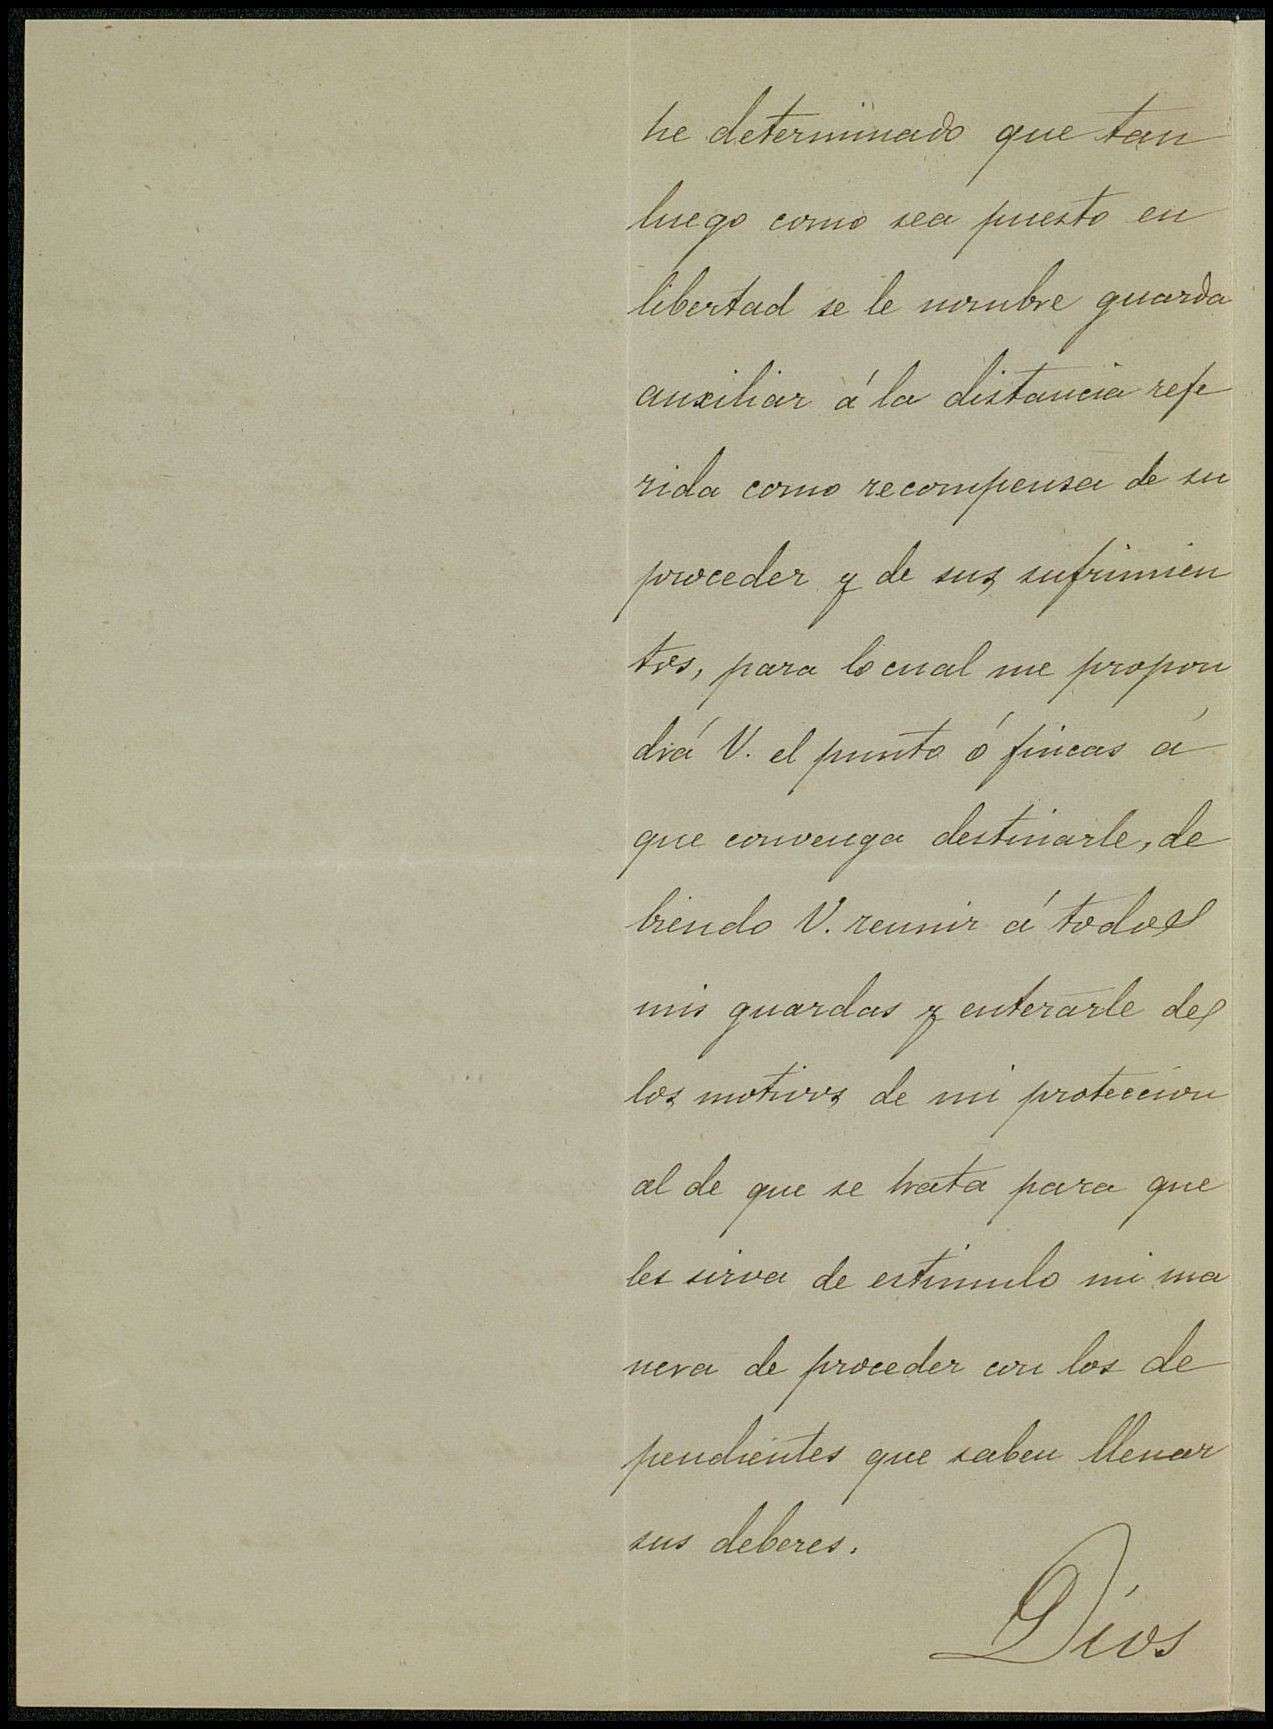 he determinado que tan
luego como sea puesto en
libertad se le nombre guarda
auxiliar á la distancia refe
rida como recompensa de su
proceder y de sus sufrimien
tos, para lo cual me propon
drá V. el punto ó fincas á
que convenga destinarle, de
biendo V. reunir á todos
mis guardas y enterarle de
los motivos de mi proteccion
al de que se trata para que
les sirva de estimulo mi ma
nera de proceder con los de
pendientes que saben llenar
sus deberes.
Dios